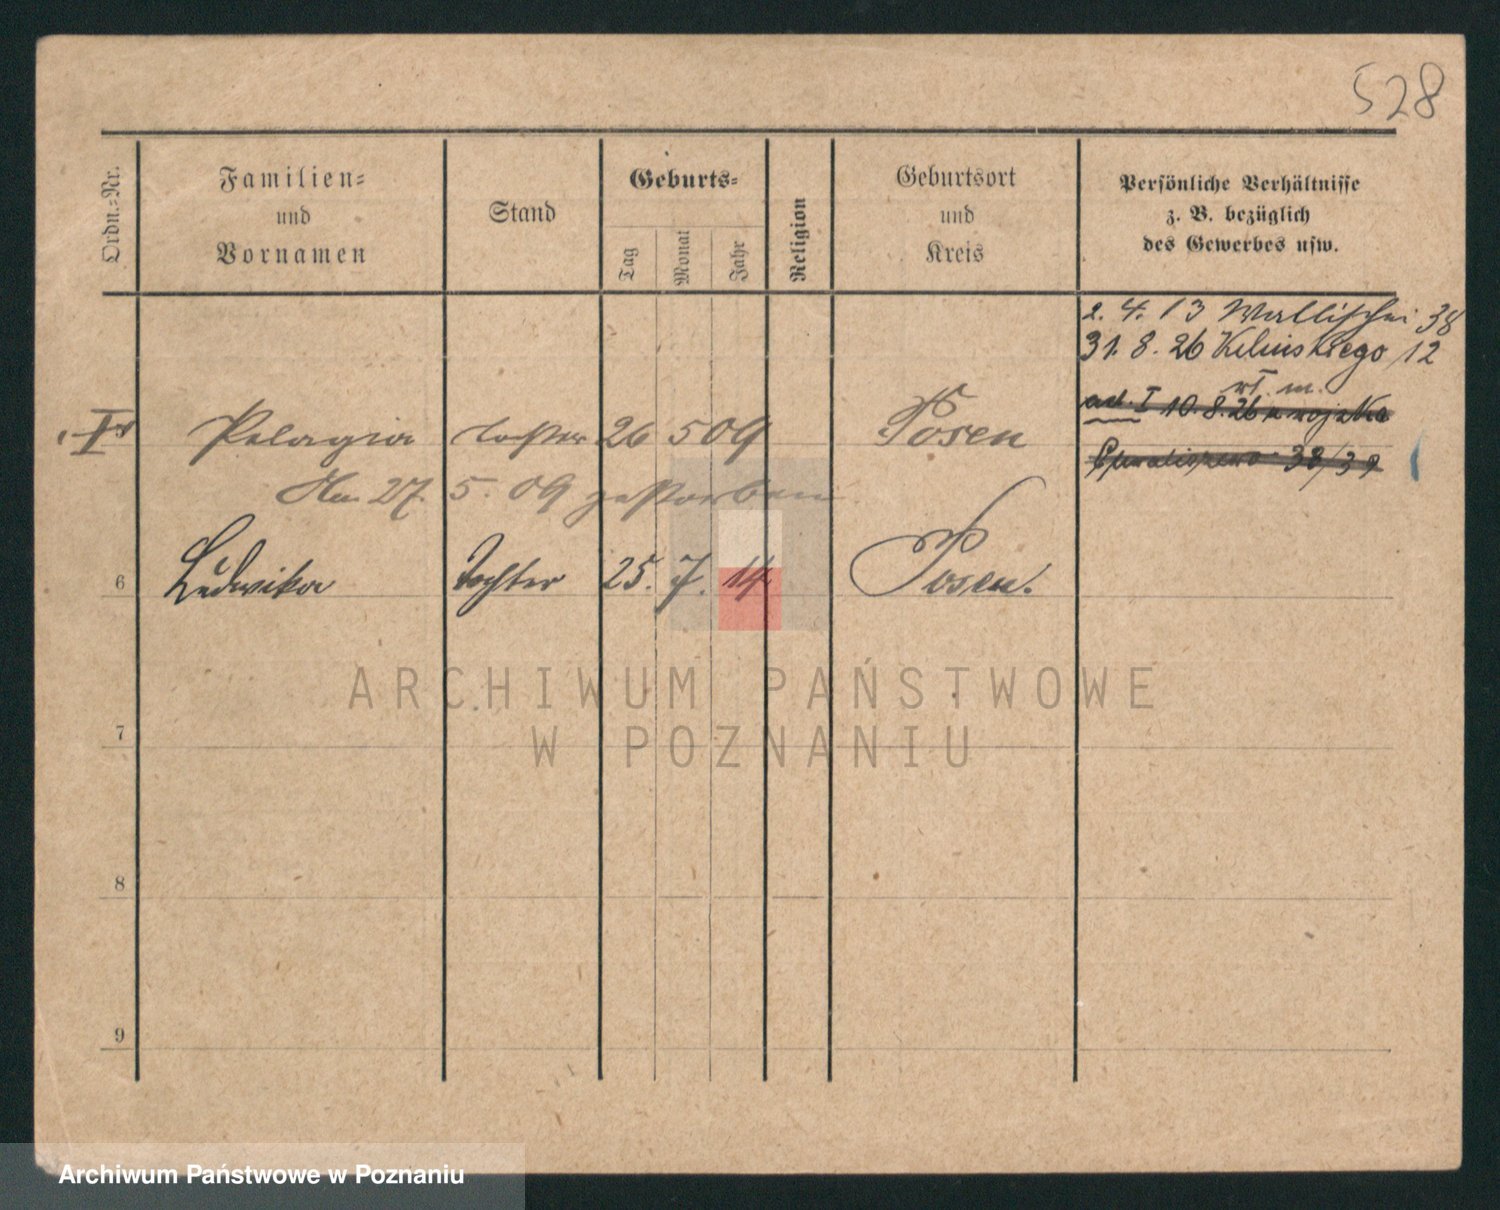 528
Ordn.-Nr.
Familien-
und
Vornamen
Stand
Geburts-
Tag
Monat
Jahr
Religion
Geburtsort
und
Kreis
Persönliche Verhältnisse
z. B. bezüglich
des Gewerbes usw.
2. 4. 13 Wallischei 38
31. 8. 26 Kilińskiego 12
I Pelagia Tochter 26 5 09 Posen
ad. I 10. 8. 26
38/39
Am 27. 5. 09 gestorben
6 Ludwika Tochter 25. 7. 14 Posen.
ARCHIWUM PAŃSTWOWE
W POZNANIU
7
8
9
Archiwum Państwowe w Poznaniu